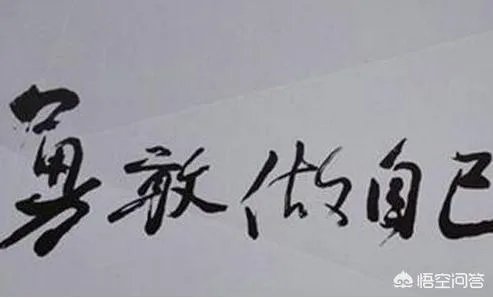 勇敢做自己
悟空问答